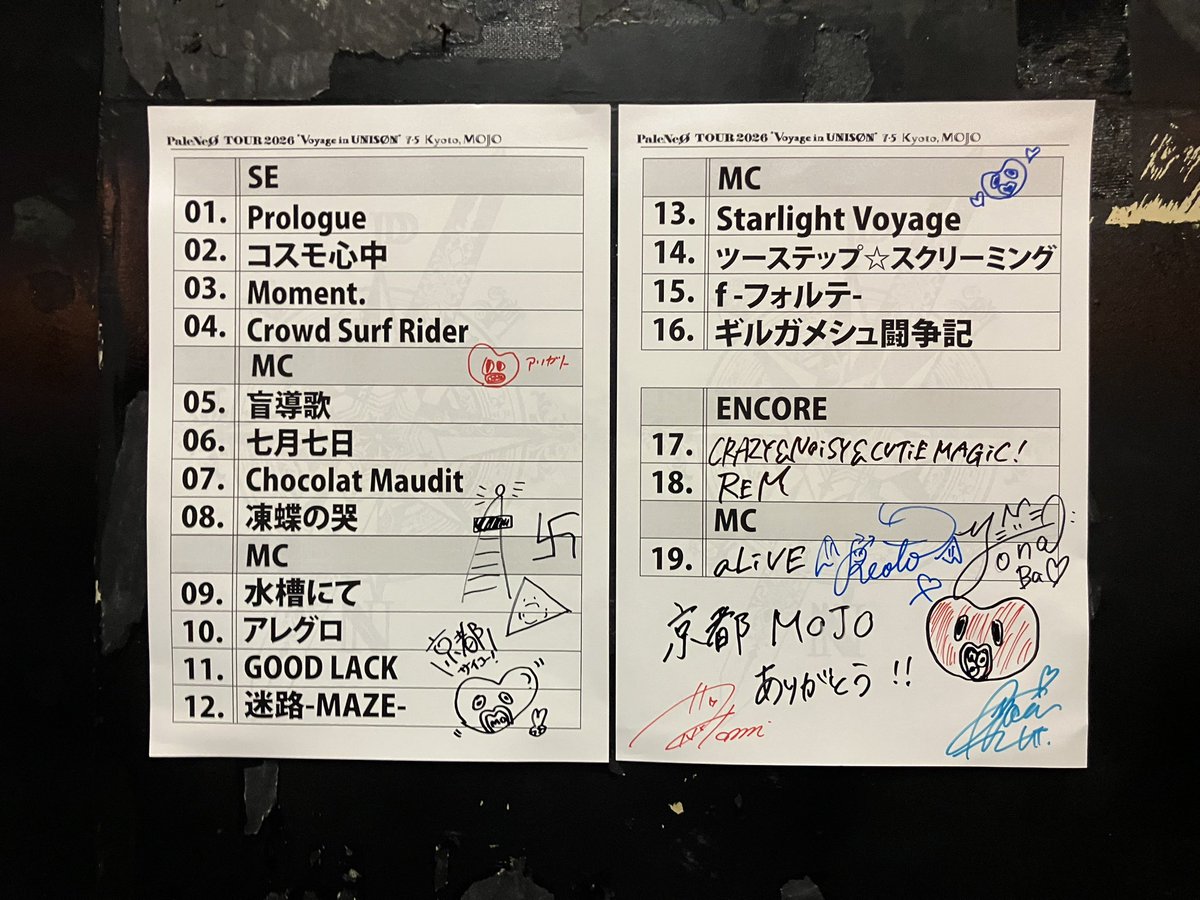 PaleNeØ TOUR 2026 "Voyage in UNISØN" 7.5 Kyoto, MOJO
SE
01. Prologue
02. コスモ心中
03. Moment.
04. Crowd Surf Rider
MC
アリガト
05. 盲導歌
06. 七月七日
07. Chocolat Maudit
08. 凍蝶の哭
MC
09. 水槽にて
10. アレグロ
11. GOOD LACK
京都
サイコー!
12. 迷路-MAZE-
MO
PaleNeØ TOUR 2026 "Voyage in UNISØN" 7.5 Kyoto, MOJO
MC
13. Starlight Voyage
14. ツーステップ☆スクリーミング
15. f -フォルテ-
16. ギルガメシュ闘争記
ENCORE
17. CRAZY&NOiSY&CUTiE MAGiC!
18. REM
MC
19. aLiVE
Keoto
yonaBa
京都 MOJO
ありがとう!!